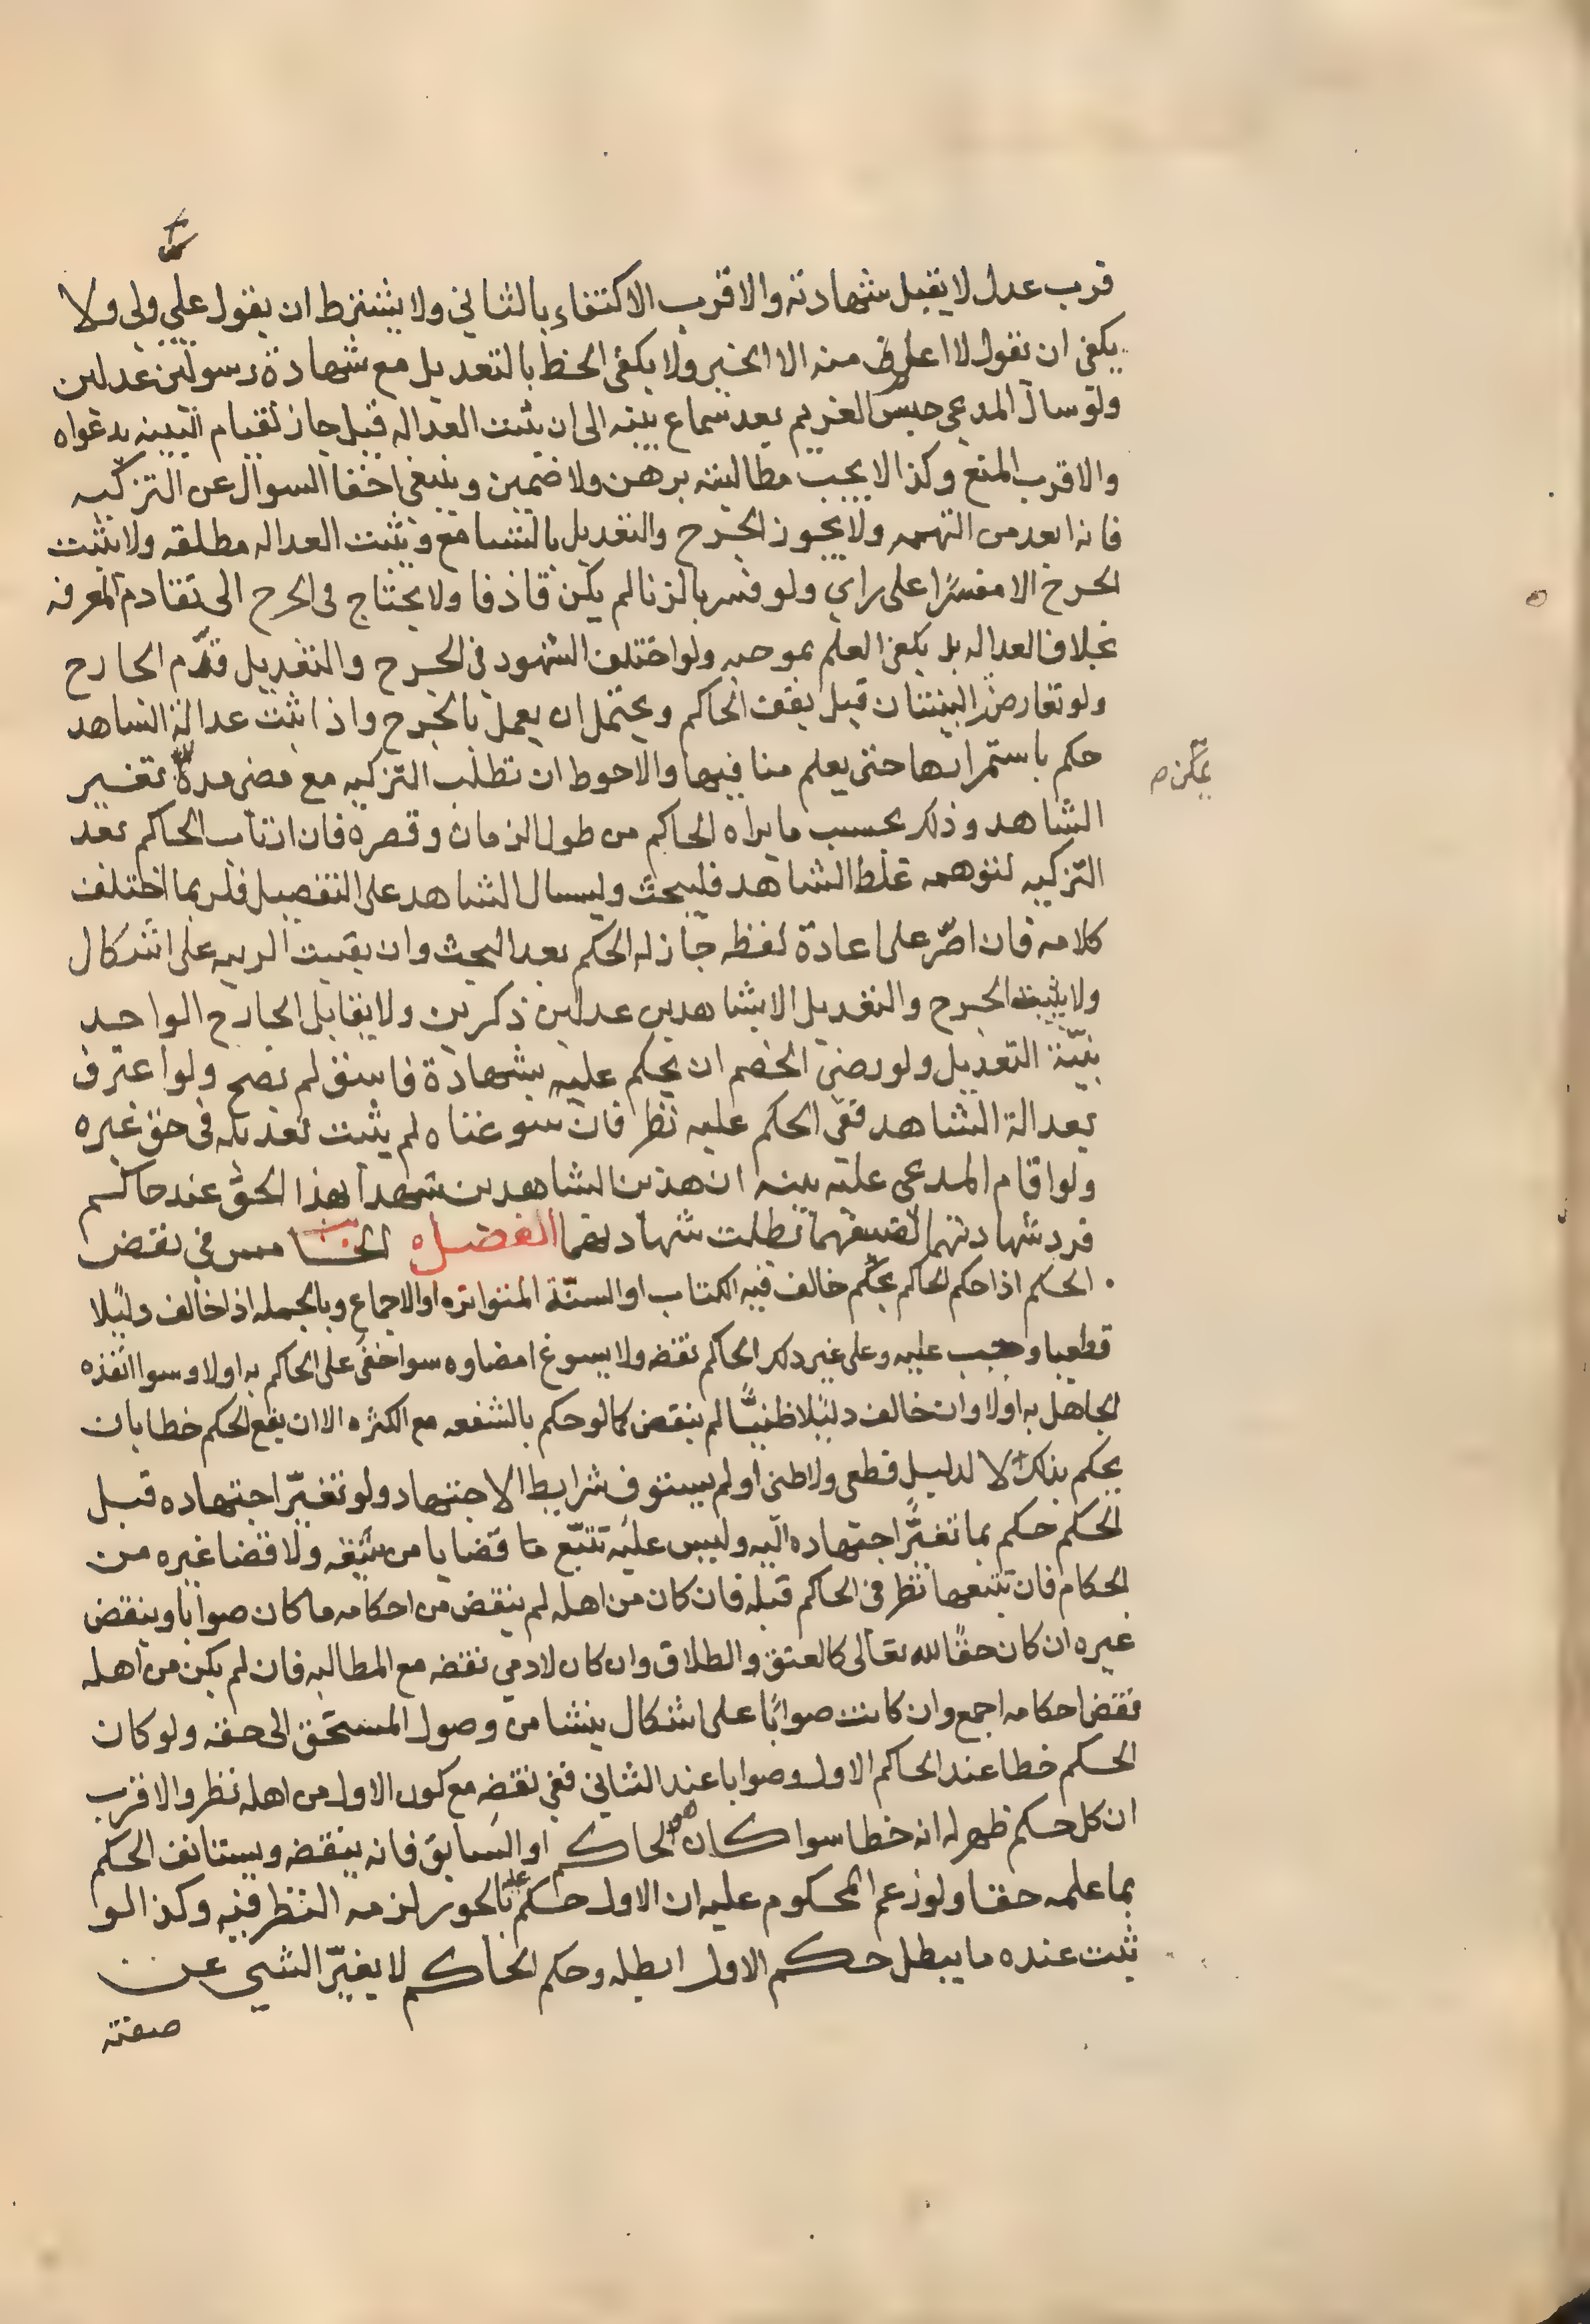 فرب عدل لا يقبل شهادته والاقرب الاكتفاء بالثاني ولا يشترط ان يقول عليّ ولي ولا
يكفي ان يقول لا اعلم منه الا الخير ولا يكفي الخط بالتعديل مع شهادة رسولين عدلين
ولو سال المدعي حبس الغريم بعد سماع بينه الى ان يثبت العداله قيل جاز لقيام البينه بدعواه
والاقرب المنع وكذا لا يجب مطالبته برهن ولا ضمين وينبغي اخفا السوال عن التزكيه
فانه ابعد من التهمه ولا يجوز الجرح والتعديل بالتسامع ويثبت العداله مطلقه ولا يثبت
الجرح الا مفسرًا على راي ولو فسر بالزنا لم يكن قاذفا ولا يحتاج في الجرح الى تقادم المعرفه
بخلاف العداله بل يكفي العلم بموجبه ولو اختلف الشهود في الجرح والتعديل قدّم الجارح
ولو تعارض البينتان قيل يقف الحاكم ويحتمل ان يعمل بالجرح واذا ثبت عدالة الشاهد
حكم باستمرارها حتى يعلم منافيها والاحوط ان تطلب التزكيه مع مضي مدة تغير
يمكن ص
الشاهد وذلك بحسب ما يراه الحاكم من طول الزمان وقصره فان ارتاب الحاكم بعد
التزكيه لتوهمه غلط الشاهد فليبحث وليسال الشاهد على التفصيل فلربما اختلف
كلامه فان اصّر على اعادة لفظه جاز له الحكم بعد البحث وان بقيت الريبه على اشكال
ولا يثبت الجرح والتعديل الا بشاهدين عدلين ذكرين ولا يقابل الجارح الواحد
بينّة التعديل ولو رضي الخصم ان يحكم عليه بشهادة فاسق لم يصح ولو اعترف
بعدالة الشاهد ففي الحكم عليه نظر فان سوغناه لم يثبت تعديله في حق غيره
ولو اقام المدعي عليه بينه ان هذين الشاهدين شهدا بهذا الحق عند حاكم
فرد شهادتهما لفسقهما بطلت شهادتهما الفصل الخامس في نقض
الحكم اذا حكم الحاكم بحكم خالف فيه الكتاب او السنّة المتواتره او الاجماع وبالجمله اذا خالف دليلا
قطعيا وجب عليه وعلى غير ذلك الحاكم نقضه ولا يسوغ امضاوه سوا خفي على الحاكم به اولا وسوا انفذه
الجاهل به اولا وان خالف دليلا ظنيًّا لم ينقض كما لو حكم بالشفعه مع الكثره الا ان يقع الحكم خطا بان
يحكم بذلك لا لدليل قطعي ولا ظني او لم يستوف شرايط الاجتهاد ولو تغيّر اجتهاده قبل
الحكم حكم بما تغيّر اجتهاده اليه وليس عليه تتبّع قضايا من سبقه ولا قضا غيره من
الحكام فان تتبعها نظر في الحاكم قبله فان كان من اهله لم ينقض من احكامه ما كان صوابا وينقض
غيره ان كان حقًا لله تعالى كالعتق والطلاق وان كان لادمي نقضه مع المطالبه فان لم يكن من اهله
نقض احكامه اجمع وان كانت صوابًا على اشكال ينشا من وصول المستحق الى حقه ولو كان
الحكم خطا عند الحاكم الاول وصوابا عند الثاني ففي نقضه مع كون الاول من اهله نظر والاقرب
ان كل حكم ظهر له انه خطا سوا كان هو الحاكم او السابق فانه ينقضه ويستانف الحكم
بما علمه حقا ولو زعم المحكوم عليه ان الاول حكم عليه بالجور لزمه النظر فيه وكذا لو
ثبت عنده ما يبطل حكم الاول ابطله وحكم الحاكم لا يغيّر الشي عن
صفته